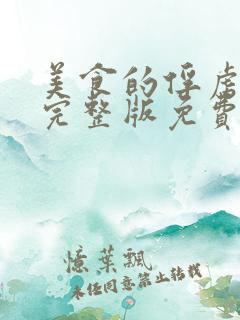 美食的俘虏
完整版免费
憶葉飄
未任同意禁止转载